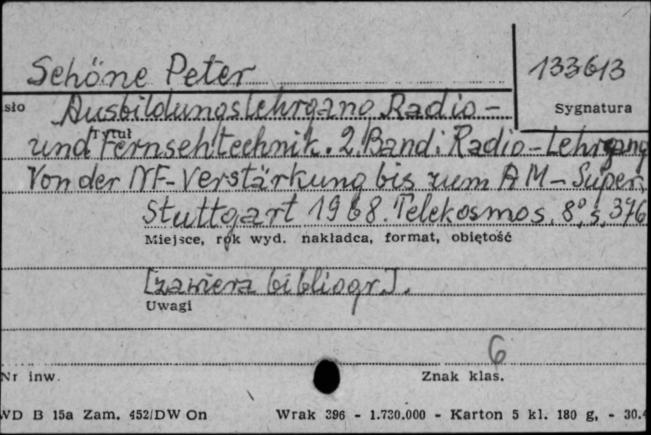 Schöne Peter
133613
sło
Sygnatura
Ausbildungslehrgang Radio-
Tytuł
und Fernsehtechnik. 2. Band: Radio-Lehrgang
Von der NF-Verstärkung bis zum AM-Super.
Stuttgart 1968. Telekosmos, 8°, s. 376
Miejsce, rok wyd. nakładca, format, objętość
[zawiera bibliogr.].
Uwagi
6
Nr inw.
Znak klas.
WD B 15a Zam. 452/DW On Wrak 396 - 1.730.000 - Karton 5 kl. 180 g, - 30.4